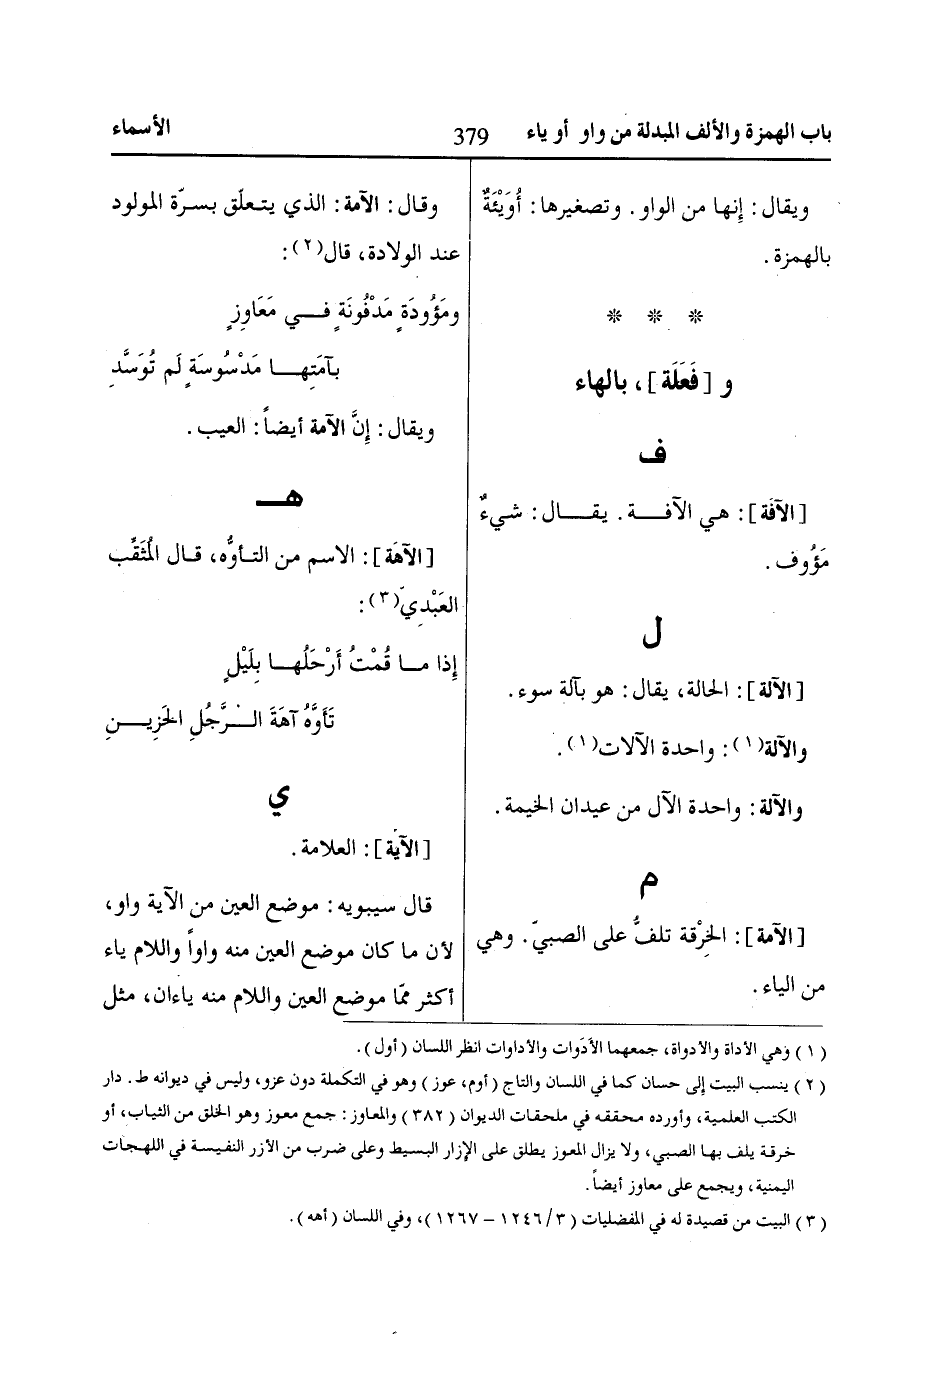 باب الهمزة والألف المبدلة من واو أو ياء 379 الأسماء
ويقال: إنها من الواو. وتصغيرها: أُوَيْئَةٌ
بالهمزة.
* * *
و [فَعَلَة]، بالهاء
ف
[الآفَة]: هي الآفــة. يقــال: شيءٌ
مَؤُوف.
ل
[الآلة]: الحالة، يقال: هو بآلة سوء.
والآلة(١): واحدة الآلات(١).
والآلة: واحدة الآل من عيدان الخيمة.
م
[الآمة]: الخِرْقة تلفُّ على الصبيّ. وهي
من الياء.
وقال: الآمة: الذي يتعلّق بسرّة المولود
عند الولادة، قال(٢):
ومَؤُودَةٍ مَدْفُونَةٍ فــي مَعَاوِزٍ
بآمَتِهــا مَدْسُوسَةٍ لَم تُوَسَّدِ
ويقال: إنَّ الآمة أيضاً: العيب.
هـ
[الآهَة]: الاسم من التأوُّه، قال المُثَقِّب
العَبْدِيّ(٣):
إذا مـا قُمْتُ أرْحَلُهـا بِلَيْلٍ
تَأوَّهُ آهَةَ الـرَّجُلِ الحَزِيــنِ
ي
[الآيَة]: العلامة.
قال سيبويه: موضع العين من الآية واو،
لأن ما كان موضع العين منه واواً واللام ياء
أكثر ممّا موضع العين واللام منه ياءان، مثل
(١) وهي الأداة والأدواة، جمعهما الأدَوات والأداوات انظر اللسان (أول).
(٢) ينسب البيت إلى حسان كما في اللسان والتاج (أوم، عوز) وهو في التكملة دون عزو، وليس في ديوانه ط. دار
الكتب العلمية، وأورده محققه في ملحقات الديوان (٣٨٢) والمعاوز: جمع معوز وهو الخلق من الثياب، أو
خرقة يلف بها الصبي، ولا يزال المعوز يطلق على الإزار البسيط وعلى ضرب من الأزر النفيسة في اللهجات
اليمنية، ويجمع على معاوز أيضاً.
(٣) البيت من قصيدة له في المفضليات (٣/١٢٤٦ – ١٢٦٧)، وفي اللسان (أهه).